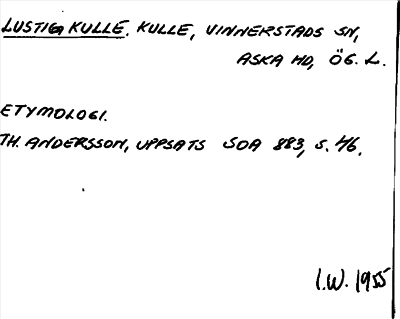 LUSTIGKULLE. KULLE, VINNERSTADS SN,
ASKA HD, ÖG. L.
ETYMOLOGI.
TH. ANDERSSON, UPPSATS SOA 883, S. 46.
I.W. 1955